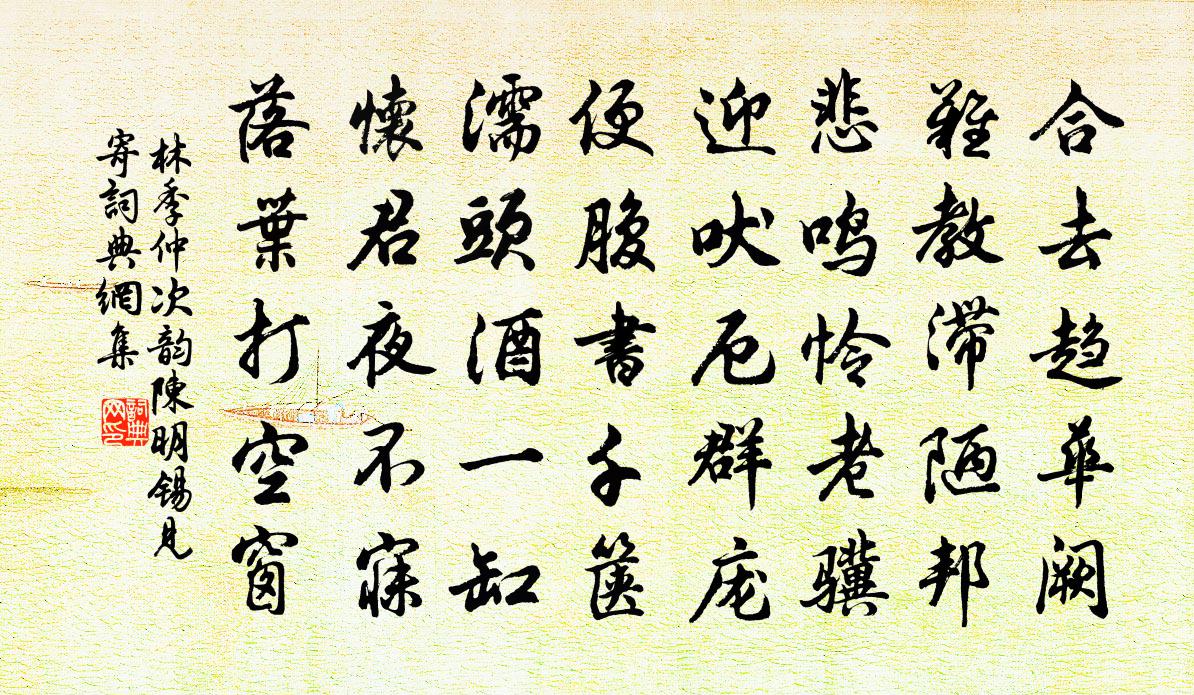 合去趋華阙
難教滞陋邦
悲鸣怜老骥
迎吠厄群庞
便腹書千箧
濡頭酒一缸
懷君夜不寐
落葉打空窗
林季仲次韵陳明锡見
寄詞典網集
詞典
网印